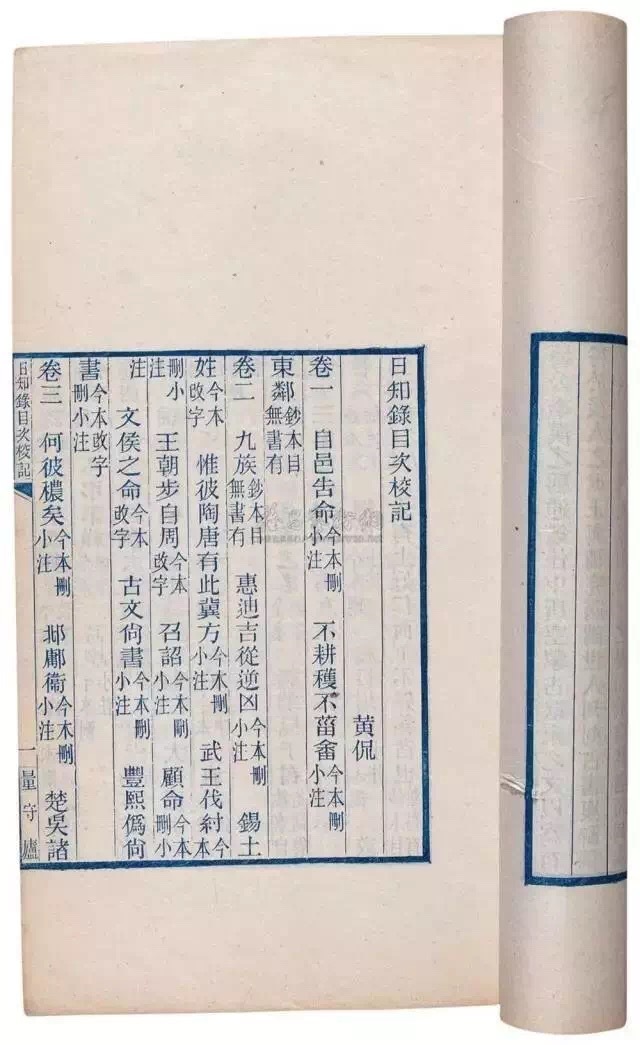 日知錄目次校記
黄侃
卷一　自邑告命今本刪小注　不耕穫不菑畬今本刪小注
東鄰鈔本目無書有
卷二　九族鈔本目無書有　惠迪吉從逆凶今本刪小注　錫土
姓今本改字　惟彼陶唐有此冀方今本刪小注　武王伐紂今本
刪小注　王朝步自周今本改字　召誥今本刪小注　顧命今本刪小
注　文侯之命今本改字　古文尙書今本刪小注　豐熙僞尙
書今本改字刪小注
卷三　何彼穠矣今本刪小注　邶鄘衞今本刪小注　楚吳諸
日知錄目次校記
一
量守廬